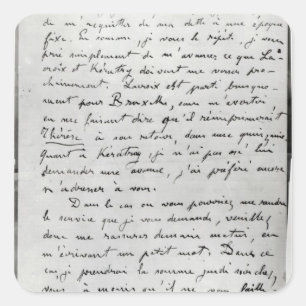 de m'acquitter de ma dette à une époque
fixe. En somme, je vous le répète, je vous
prie simplement de m'avancer ce que La-
croix et Kératry doivent me verser pro-
chainement. Lacroix est parti brusque-
ment pour Bruxelles, sans m'avertir
en me faisant dire qu'il réimprimerait
Thérèse à son retour, dans une quinzaine
Quant à Kératry, je n'ai pas osé lui
demander une avance, j'ai préféré encore
m'adresser à vous.
Dans le cas où vous pourriez me rendre
le service que je vous demande, veuillez
donc me rassurer demain matin, en
m'écrivant un petit mot. Dans ce
cas, je prendrai la somme jeudi soir chez
vous, à moins qu'il ne vous faille